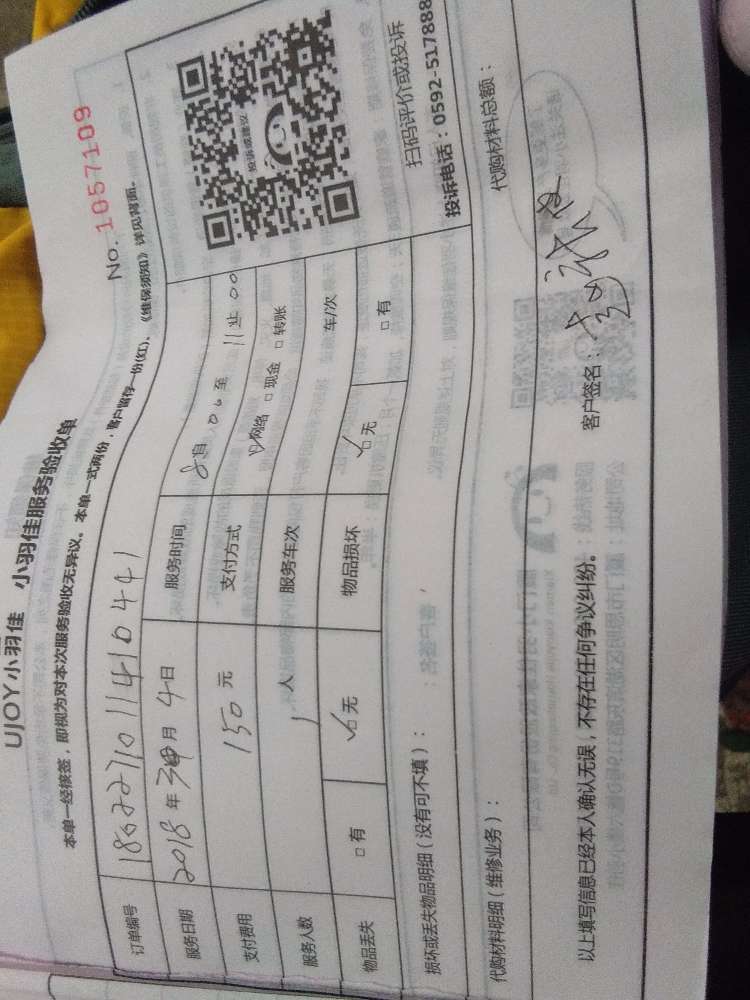 UJOY小羽佳 小羽佳服务验收单
本单一经核签，即视为对本次服务验收无异议。本单一式两份，客户留存一份(红)、《维保须知》详见背面。
No. 1057109
订单编号 1862271011410441
服务日期 2018年 月4日 服务时间 8自:00至11止:00
支付费用 150元 支付方式 ☑网络 □现金 □转账
服务人数 1人 服务车次 车/次
物品丢失 □有 ☑无 物品损坏 ☑无 □有
投诉或建议
扫码评价或投诉
投诉电话：0592-517888
损坏或丢失物品明细（没有可不填）：
代购材料明细（维修业务）： 代购材料总额：
以上填写信息已经本人确认无误，不存在任何争议纠纷。 客户签名：